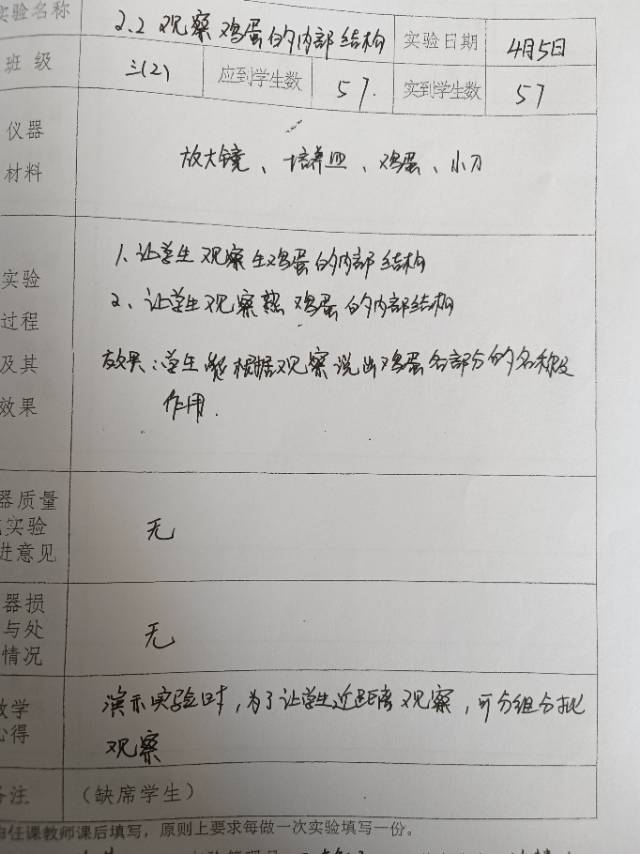 实验名称 2.2 观察鸡蛋的内部结构 实验日期 4月5日
班级 三(2) 应到学生数 57. 实到学生数 57
仪器
材料
放大镜、培养皿、鸡蛋、小刀
实验
过程
及其
效果
1、让学生观察生鸡蛋的内部结构
2、让学生观察熟鸡蛋的内部结构
效果:学生能根据观察说出鸡蛋各部分的名称及
作用.
器质量
实验
进意见
无
器损
与处
情况
无
教学
心得
演示实验时,为了让学生近距离观察,可分组分批
观察
备注 (缺席学生)
由任课教师课后填写,原则上要求每做一次实验填写一份。